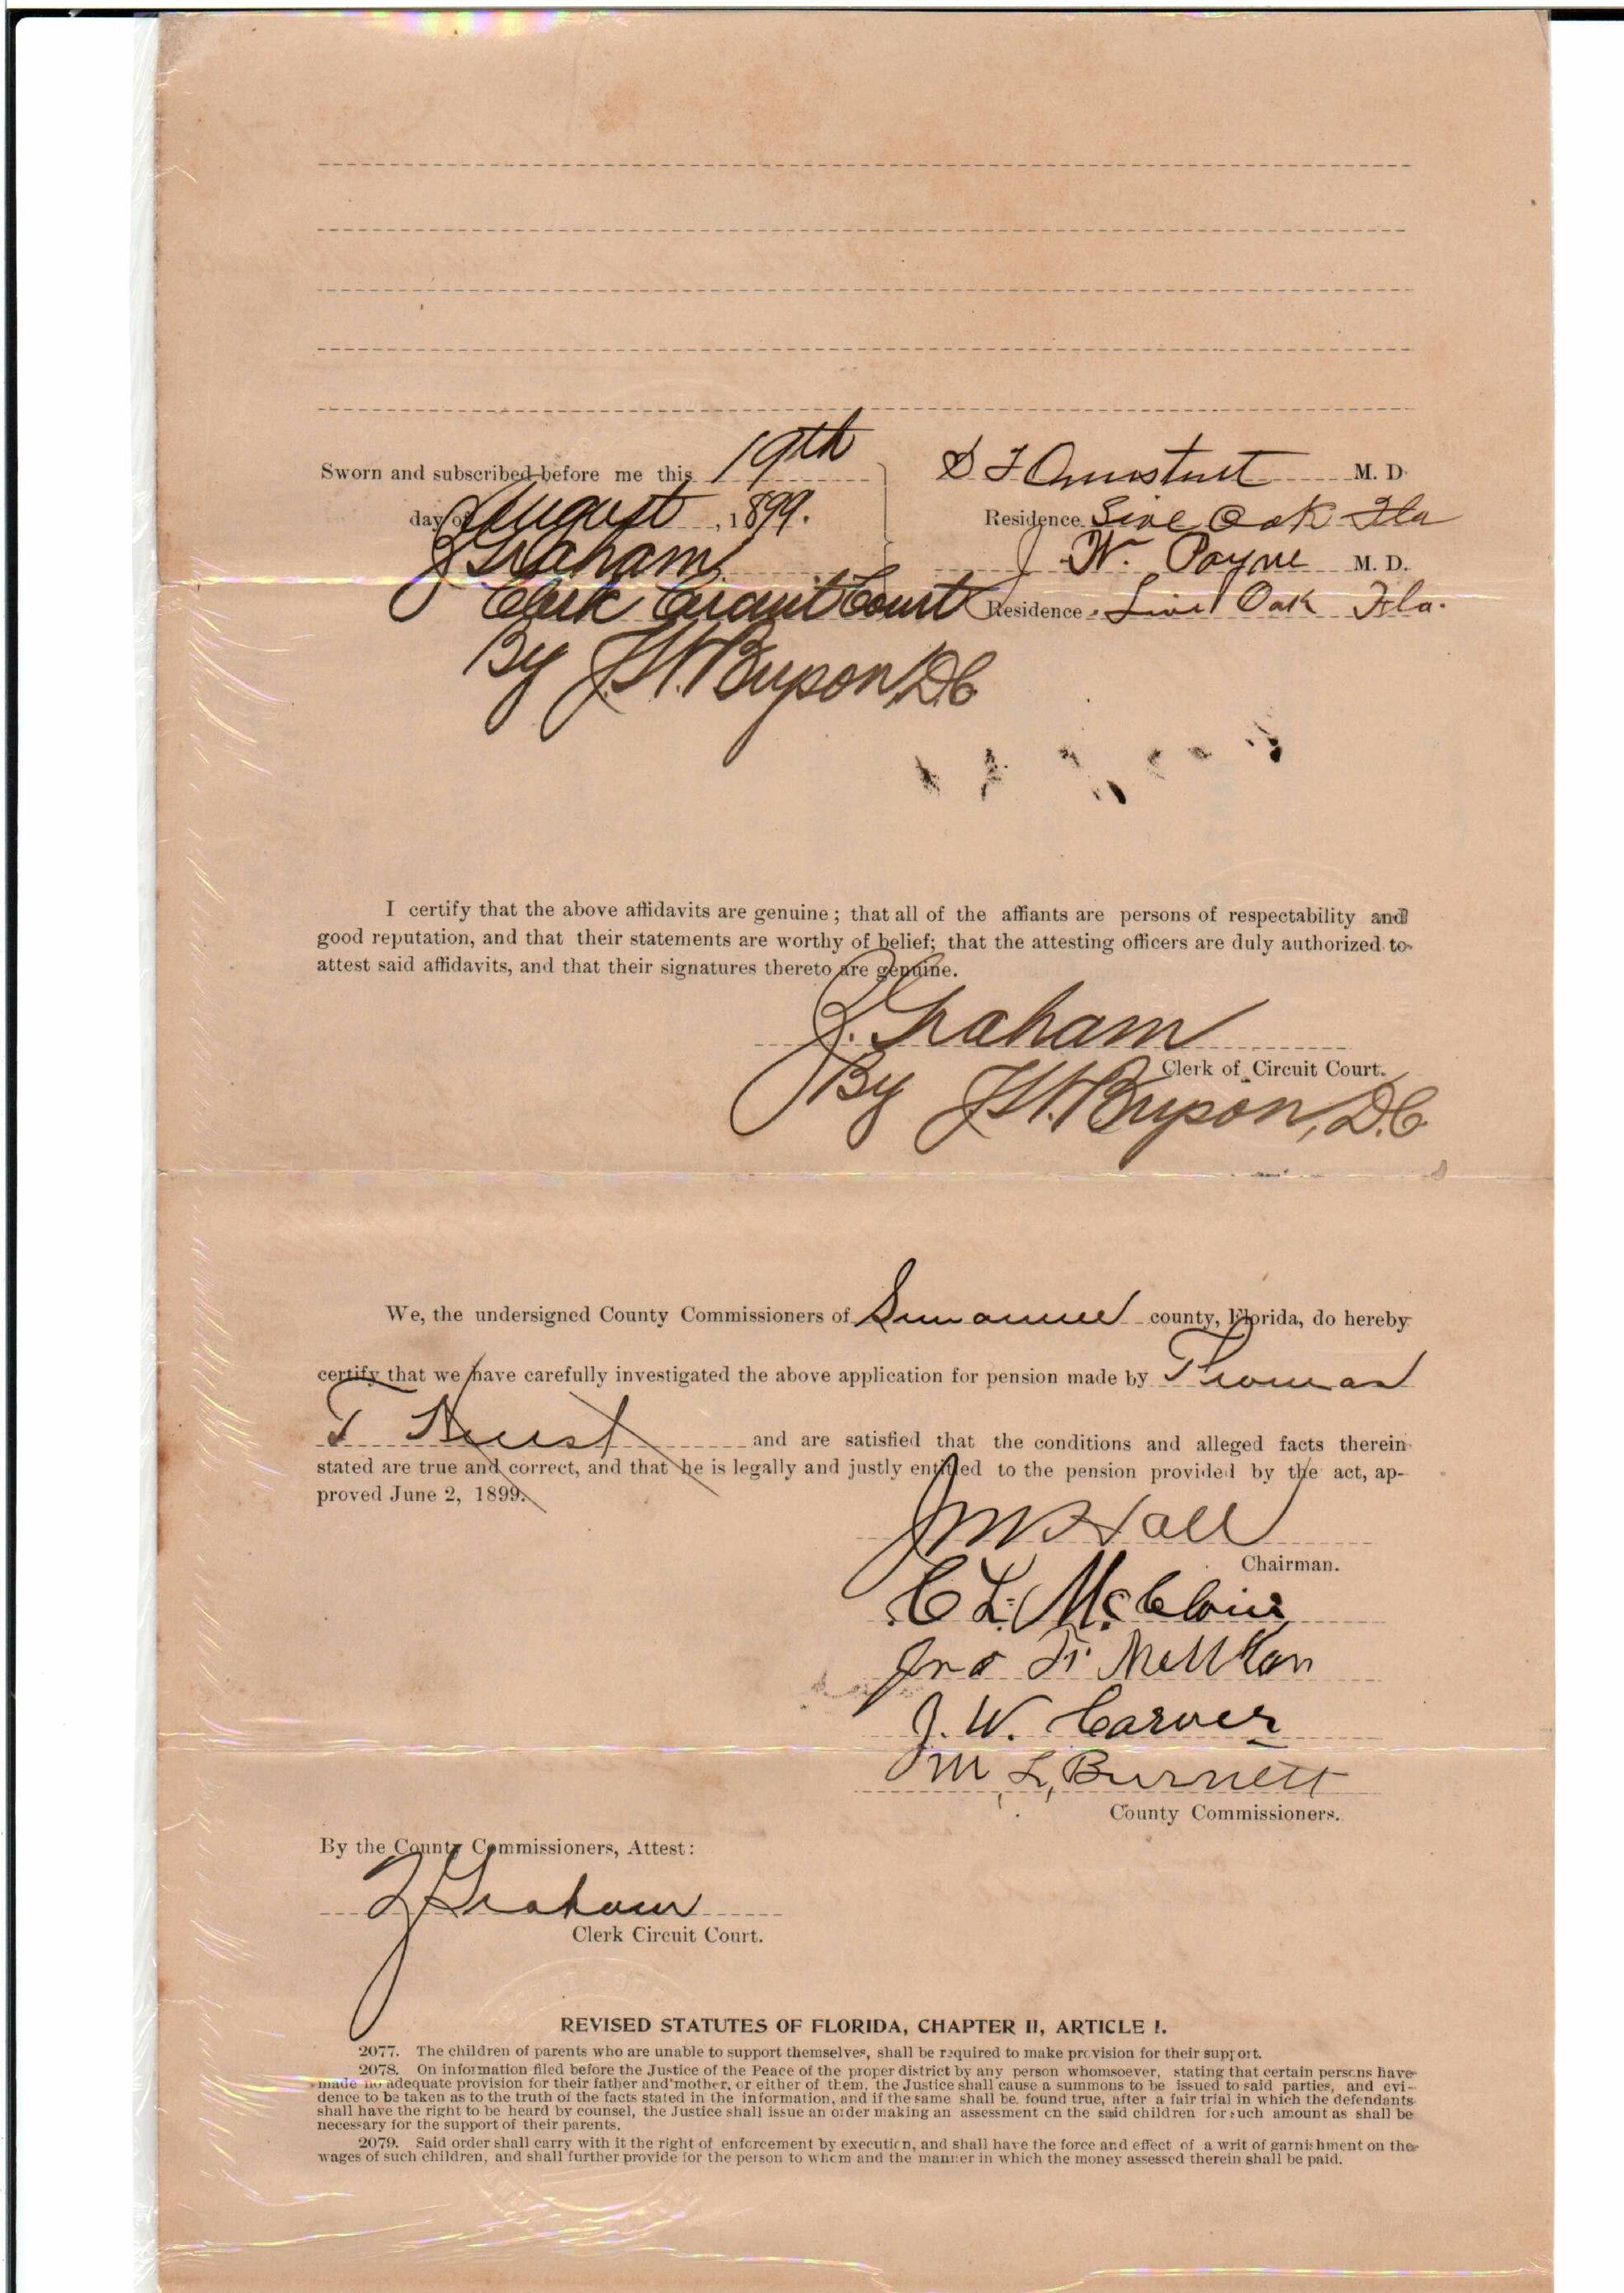 Sworn and subscribed before me this 19th
day of August, 1899.
J Graham
Clerk Circuit Court
By J.W. Bryson, D.C
S T M. D.
Residence Live Oak Fla
J. W. Payne M. D.
Residence Live Oak Fla.
I certify that the above affidavits are genuine; that all of the affiants are persons of respectability and
good reputation, and that their statements are worthy of belief; that the attesting officers are duly authorized to
attest said affidavits, and that their signatures thereto are genuine.
J. Graham
Clerk of Circuit Court.
By J.W. Bryson, D.C
We, the undersigned County Commissioners of Suwannee county, Florida, do hereby
certify that we have carefully investigated the above application for pension made by Thomas
T and are satisfied that the conditions and alleged facts therein
stated are true and correct, and that he is legally and justly entitled to the pension provided by the act, ap-
proved June 2, 1899.
Hall
Chairman.
C L.
Jno
J. W. Carver
M L, Burnett
County Commissioners.
By the County Commissioners, Attest:
J Graham
Clerk Circuit Court.
REVISED STATUTES OF FLORIDA, CHAPTER II, ARTICLE I.
2077. The children of parents who are unable to support themselves, shall be required to make provision for their support.
2078. On information filed before the Justice of the Peace of the proper district by any person whomsoever, stating that certain persons have
made no adequate provision for their father and mother, or either of them, the Justice shall cause a summons to be issued to said parties, and evi-
dence to be taken as to the truth of the facts stated in the information, and if the same shall be found true, after a fair trial in which the defendants
shall have the right to be heard by counsel, the Justice shall issue an order making an assessment on the said children for such amount as shall be
necessary for the support of their parents.
2079. Said order shall carry with it the right of enforcement by execution, and shall have the force and effect of a writ of garnishment on the
wages of such children, and shall further provide for the person to whom and the manner in which the money assessed therein shall be paid.